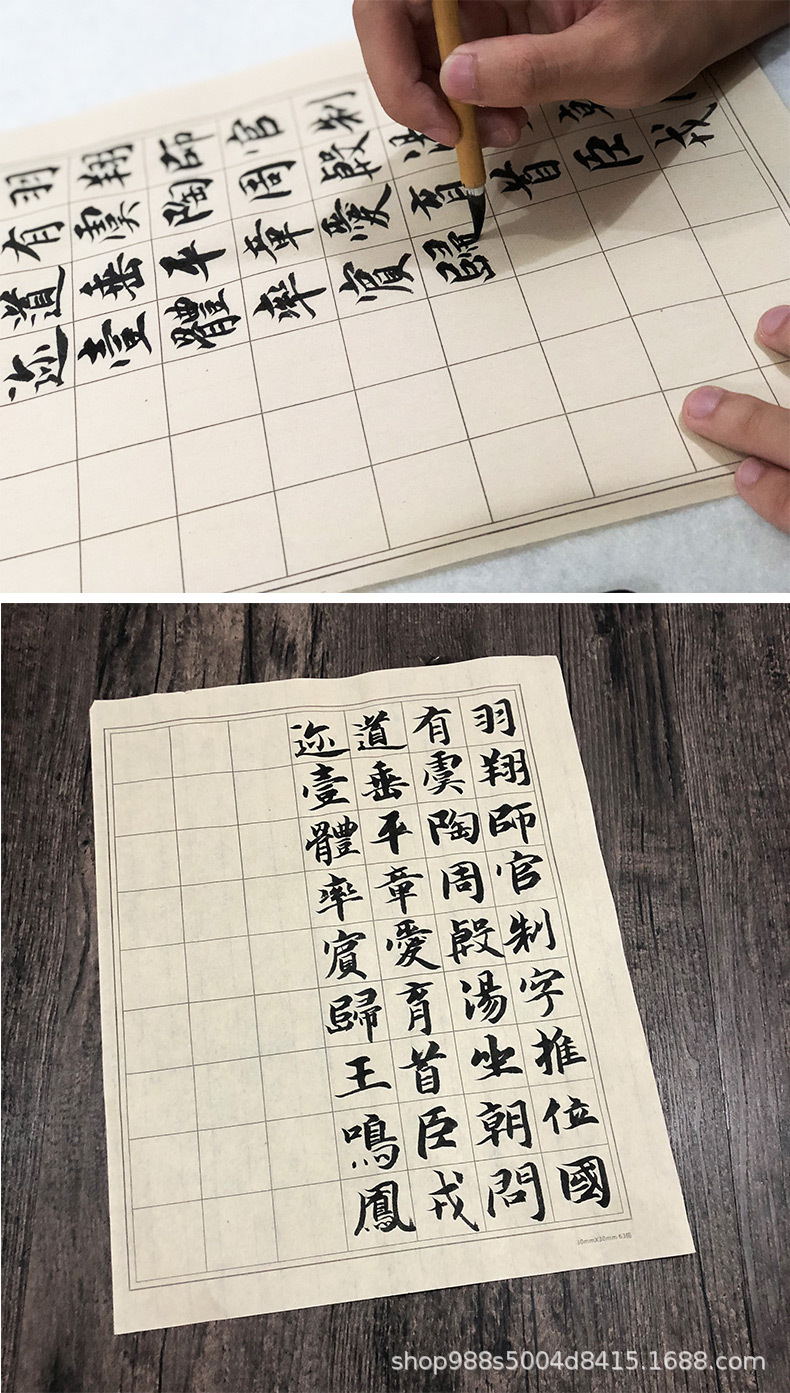 羽翔師官制
有虞陶周殷湯
道垂平章愛育首臣戎
迩壹體率賓歸
羽翔師官制字推位國
有虞陶周殷湯坐朝問
道垂平章愛育首臣戎
迩壹體率賓歸王鳴鳳
30mmX30mm 63格
shop988s5004d8415.1688.com